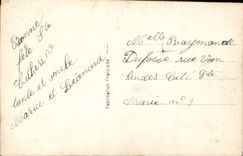 Bonne
fête Ste
Catherine
tante et oncle
Marie et Léonard
Fabrication Française
Melle Raymonde
Dufosse rue Van
Cité Ste
Marie no 9